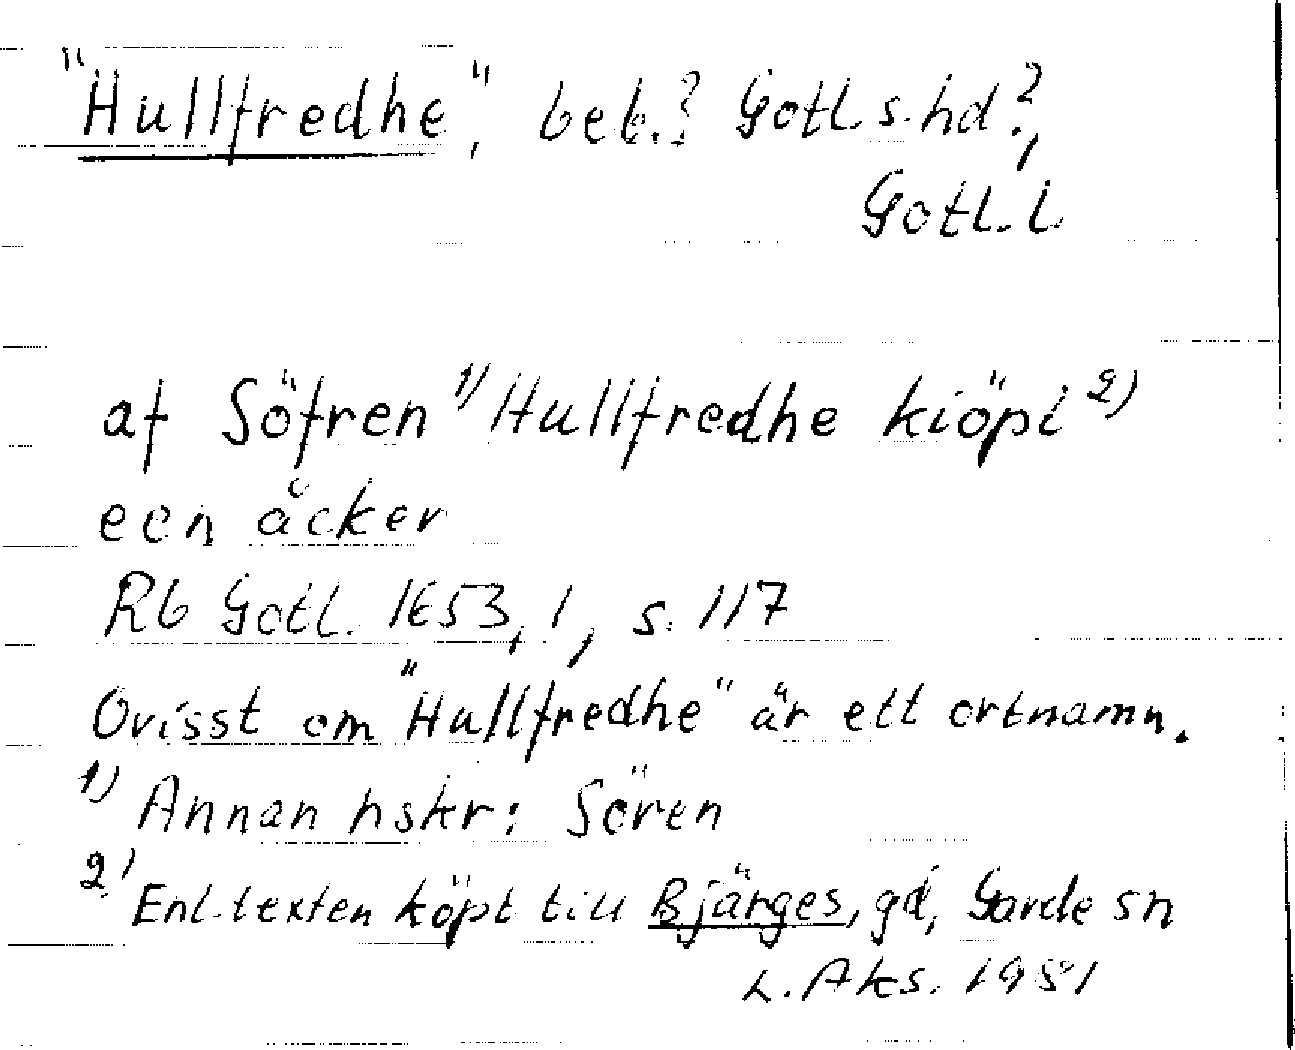 "Hullfredhe", beb.? Gotl. s. hd?,
Gotl. l
af Söfren 1) Hullfredhe kiöpt 2)
een åcker
Rb Gotl. 1653, 1, s. 117
Ovisst om "Hullfredhe" är ett ortnamn.
1) Annan hskr: Sören
2) Enl. texten köpt till Bjärges, gd, Garde sn
L. Aks. 1981